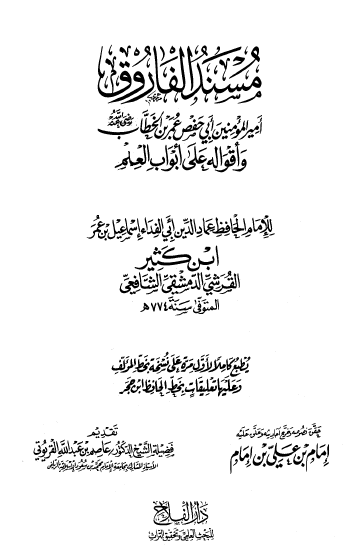 مسند الفاروق
أمير المؤمنين أبي حفص عمر بن الخطاب رضي الله عنه
وأقواله على أبواب العلم
للإمام الحافظ عماد الدين أبي الفداء إسماعيل بن عمر
ابن كثير
القرشي الدمشقي الشافعي
المتوفى سنة ٧٧٤هـ
يطبع كاملا لأول مرة على نسخة بخط المؤلف
وعليها تعليقات بخط الحافظ ابن حجر
تقديم
فضيلة الشيخ الدكتور عاصم بن عبد الله القريوتي
الأستاذ المشارك بجامعة الإمام محمد بن سعود الإسلامية
حقق نصوصه وخرج أحاديثه وعلق عليه
إمام بن علي بن إمام
دار الفلاح
للبحث العلمي وتحقيق التراث